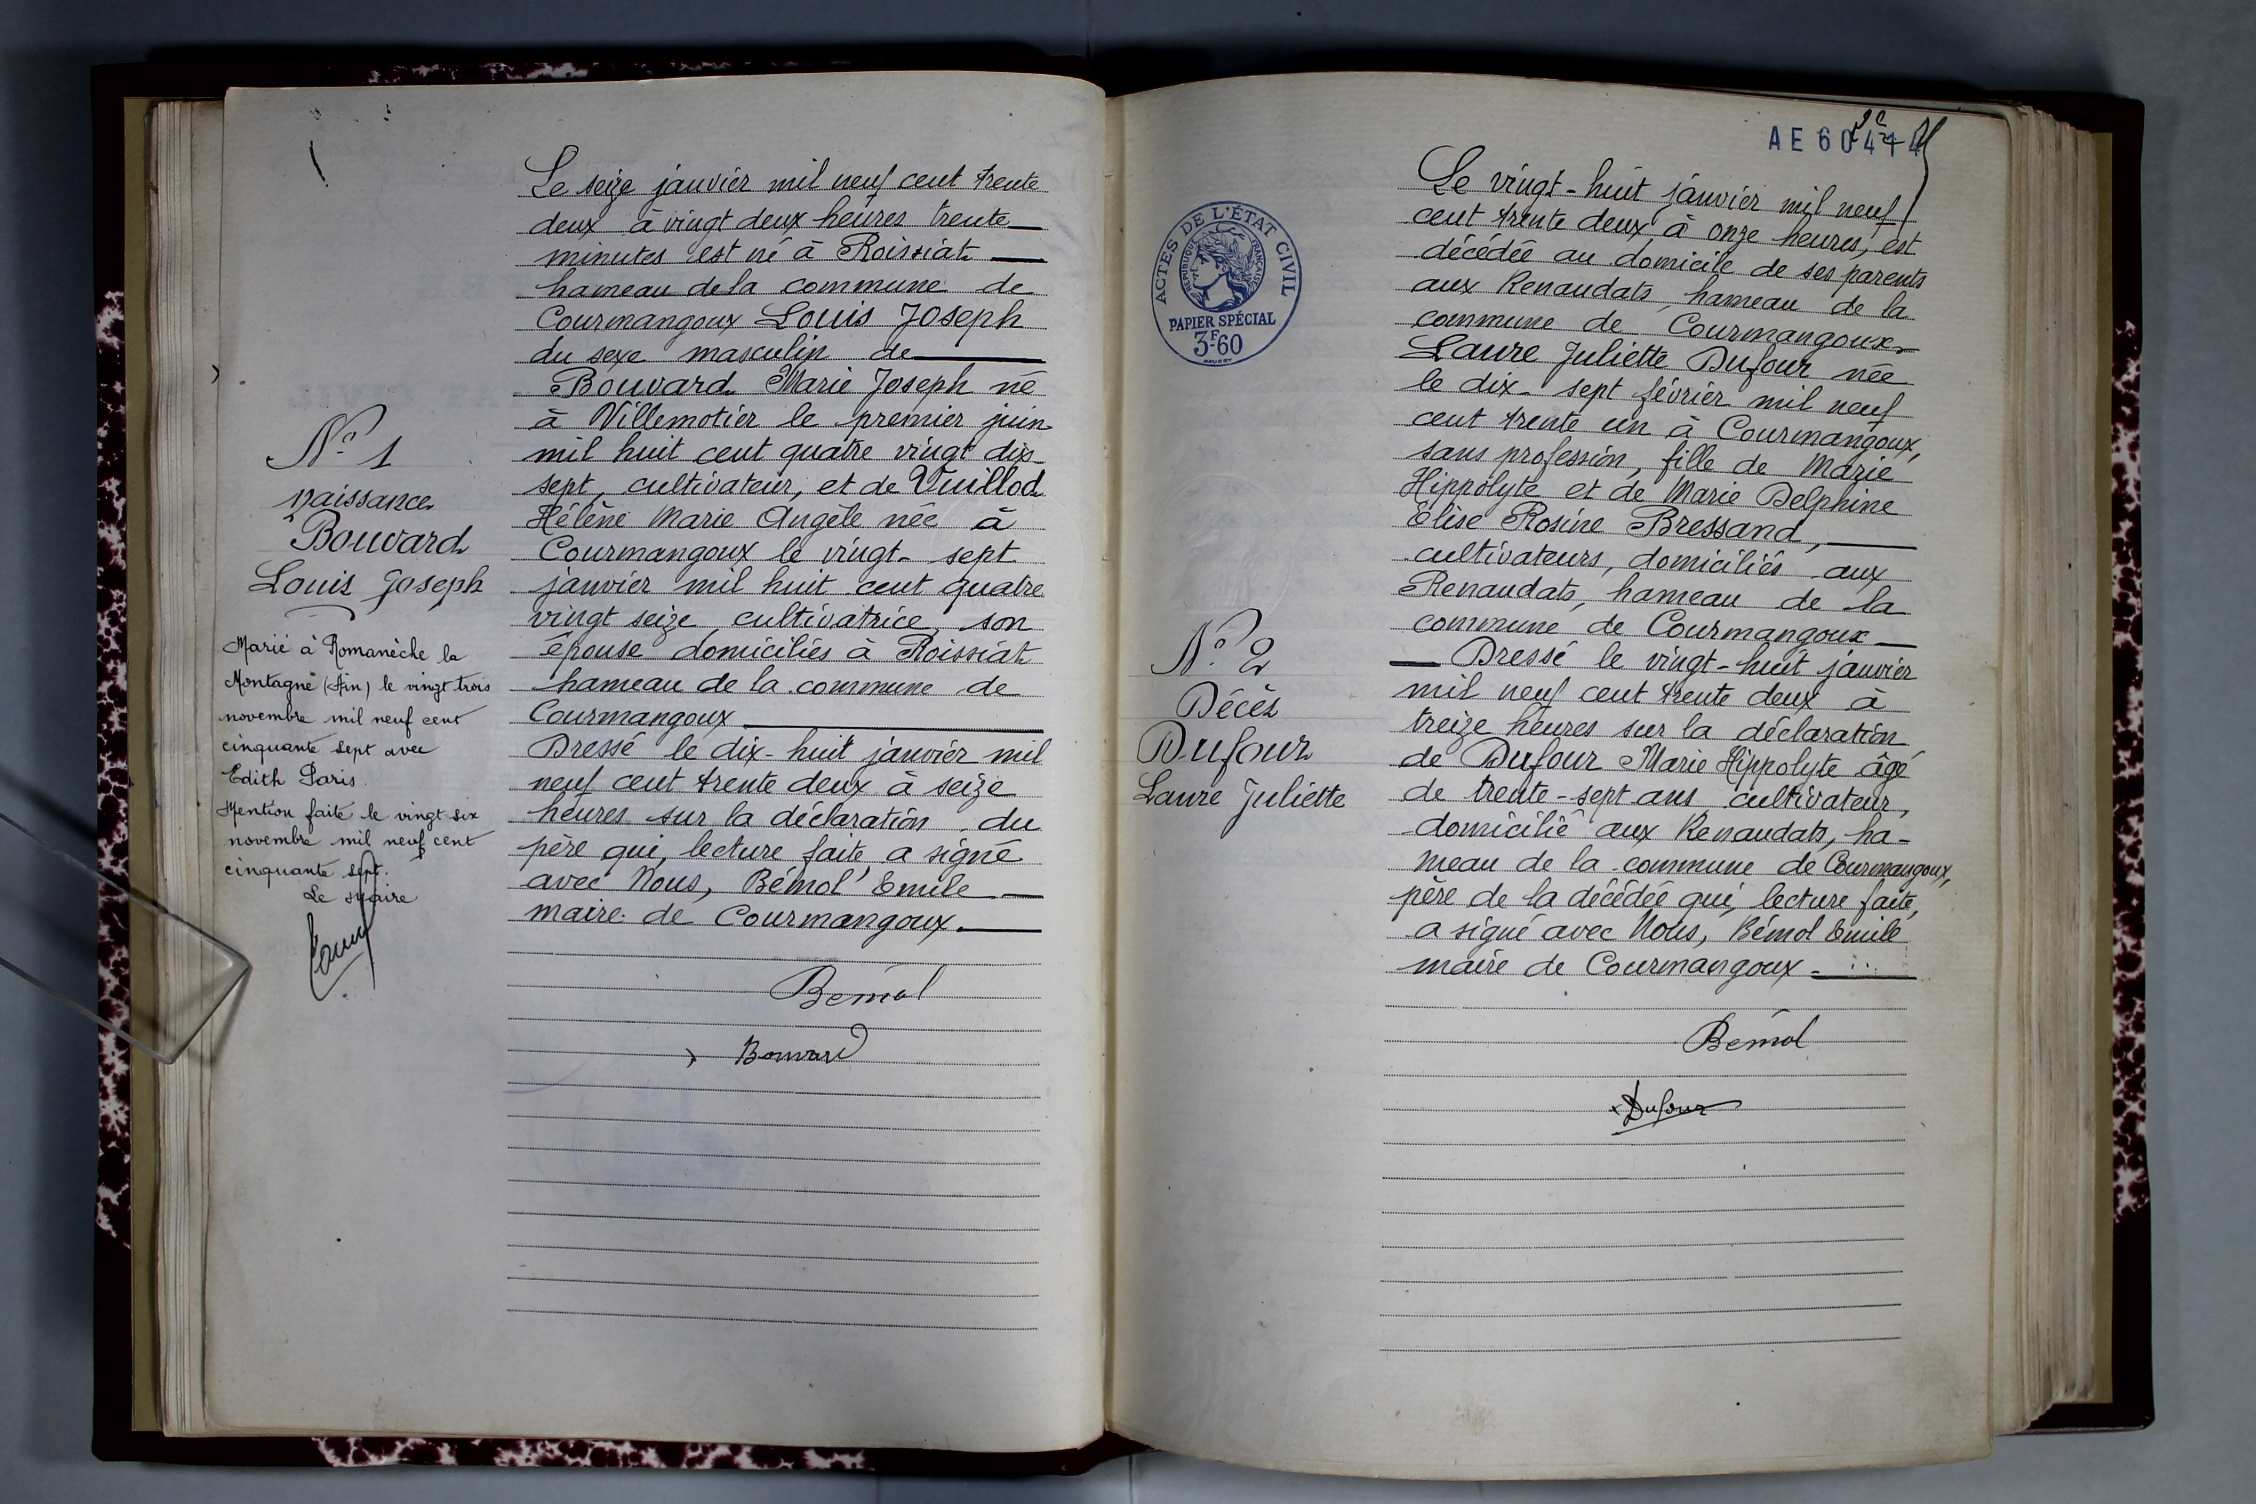 N° 1
naissance
Bouvard
Louis Joseph
Marié à Romanèche la
Montagne (Ain) le vingt trois
novembre mil neuf cent
cinquante sept avec
Edith Paris.
Mention faite le vingt six
novembre mil neuf cent
cinquante sept.
Le maire
Le seize janvier mil neuf cent trente
deux à vingt deux heures trente
minutes est né à Roissiat
hameau de la commune de
Courmangoux Louis Joseph
du sexe masculin de
Bouvard Marie Joseph né
à Villemotier le premier juin
mil huit cent quatre vingt dix
sept, cultivateur, et de Vuillod
Hélène Marie Angèle née à
Courmangoux le vingt-sept
janvier mil huit cent quatre
vingt seize cultivatrice, son
épouse domiciliés à Roissiat
hameau de la commune de
Courmangoux
Dressé le dix-huit janvier mil
neuf cent trente deux à seize
heures sur la déclaration du
père qui, lecture faite a signé
avec Nous, Bémol Emile
maire de Courmangoux.
Bémol
Bouvard
AE 60
ACTES DE L'ÉTAT CIVIL
RÉPUBLIQUE FRANÇAISE
PAPIER SPÉCIAL
3F-60
N° 2
Décès
Dufour
Laure Juliette
Le vingt-huit janvier mil neuf
cent trente deux à onze heures, est
décédée au domicile de ses parents
aux Renaudats, hameau de la
commune de Courmangoux,
Laure Juliette Dufour née
le dix-sept février mil neuf
cent trente un à Courmangoux,
sans profession, fille de Marie
Hippolyte et de Marie Delphine
Elise Rosine Bressand,
cultivateurs, domiciliés aux
Renaudats, hameau de la
commune de Courmangoux
Dressé le vingt-huit janvier
mil neuf cent trente deux à
treize heures sur la déclaration
de Dufour Marie Hippolyte âgé
de trente-sept ans cultivateur,
domicilié aux Renaudats, ha-
meau de la commune de Courmangoux,
père de la décédée qui, lecture faite,
a signé avec Nous, Bémol Emile
maire de Courmangoux
Bémol
Dufour